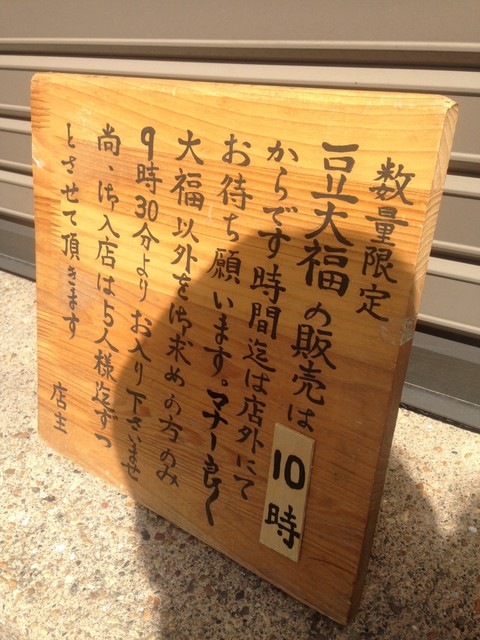 数量限定
豆大福の販売は10時
からです時間迄は店外にて
お待ち願います。マナー良く
大福以外を御求めの方のみ
9時30分よりお入り下さいませ
尚、御入店は5人様迄ずつ
とさせて頂きます
店主